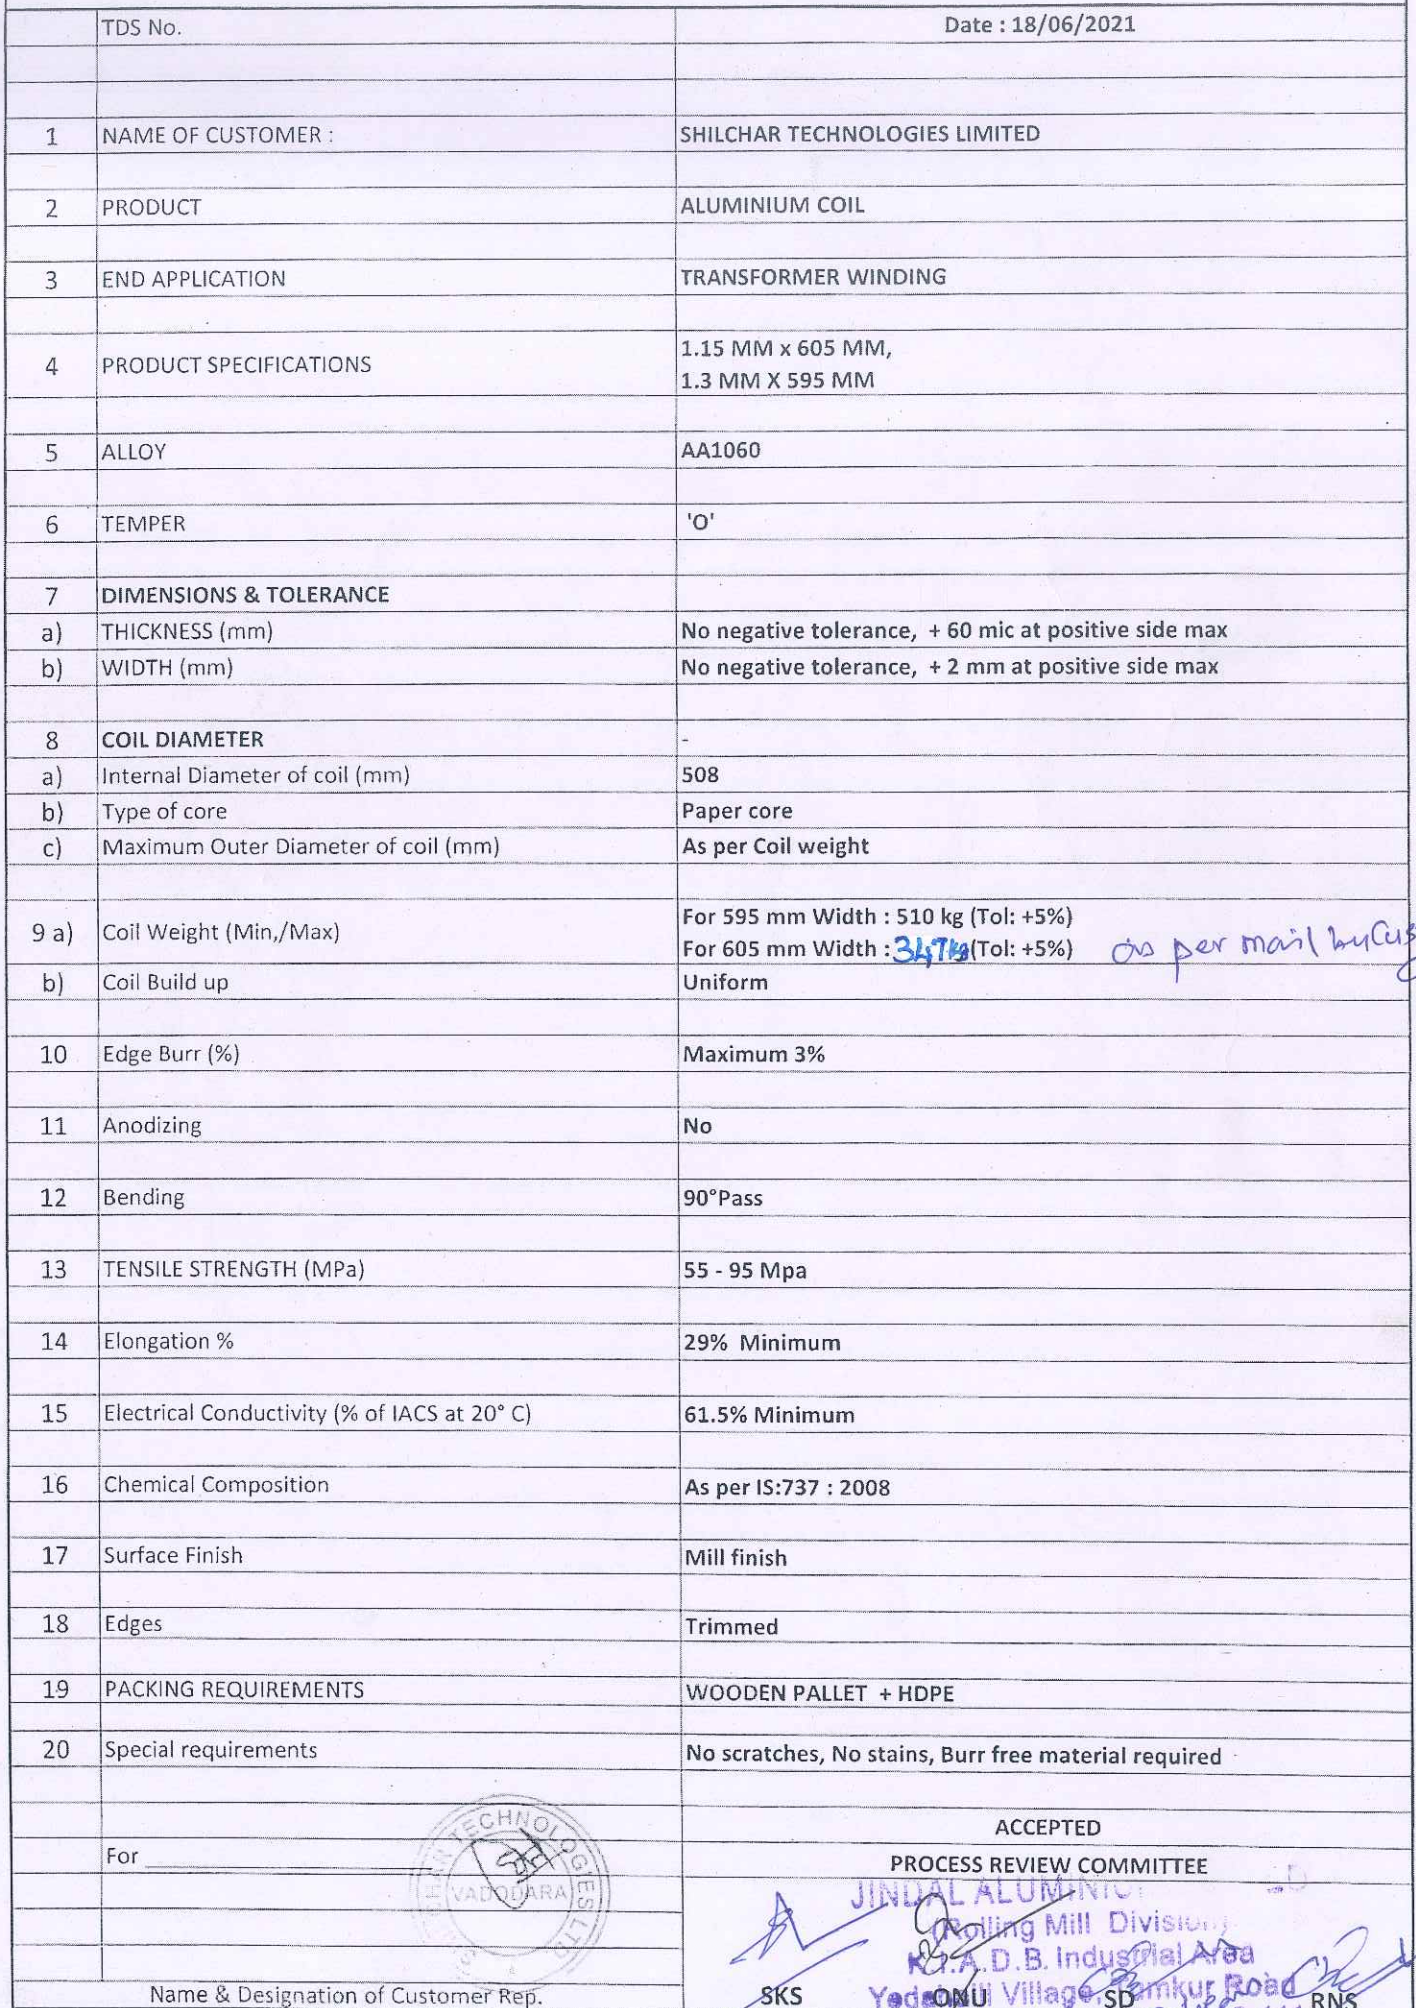 TDS No. Date : 18/06/2021
1 NAME OF CUSTOMER : SHILCHAR TECHNOLOGIES LIMITED
2 PRODUCT ALUMINIUM COIL
3 END APPLICATION TRANSFORMER WINDING
4 PRODUCT SPECIFICATIONS 1.15 MM x 605 MM,
1.3 MM X 595 MM
5 ALLOY AA1060
6 TEMPER 'O'
7 DIMENSIONS & TOLERANCE
a) THICKNESS (mm) No negative tolerance, + 60 mic at positive side max
b) WIDTH (mm) No negative tolerance, + 2 mm at positive side max
8 COIL DIAMETER -
a) Internal Diameter of coil (mm) 508
b) Type of core Paper core
c) Maximum Outer Diameter of coil (mm) As per Coil weight
9 a) Coil Weight (Min,/Max) For 595 mm Width : 510 kg (Tol: +5%)
For 605 mm Width : 347kg (Tol: +5%) as per mail by Cus
b) Coil Build up Uniform
10 Edge Burr (%) Maximum 3%
11 Anodizing No
12 Bending 90°Pass
13 TENSILE STRENGTH (MPa) 55 - 95 Mpa
14 Elongation % 29% Minimum
15 Electrical Conductivity (% of IACS at 20° C) 61.5% Minimum
16 Chemical Composition As per IS:737 : 2008
17 Surface Finish Mill finish
18 Edges Trimmed
19 PACKING REQUIREMENTS WOODEN PALLET + HDPE
20 Special requirements No scratches, No stains, Burr free material required
ACCEPTED
For
TECHNOLOGIES LTD
VADODARA
PROCESS REVIEW COMMITTEE
JINDAL
(Rolling Mill Division)
K.I.A.D.B. Industrial Area
Village, Road
Name & Designation of Customer Rep. SKS ONU SD RNS